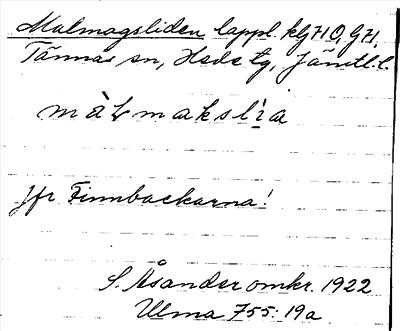 Malmagsliden lappl. klg HO, GH,
Tännäs sn, Heds tg, Jämtl. l.
màLmakslìa
Jfr Finnbackarna!
S. Åsander omkr. 1922
Ulma 755: 19a